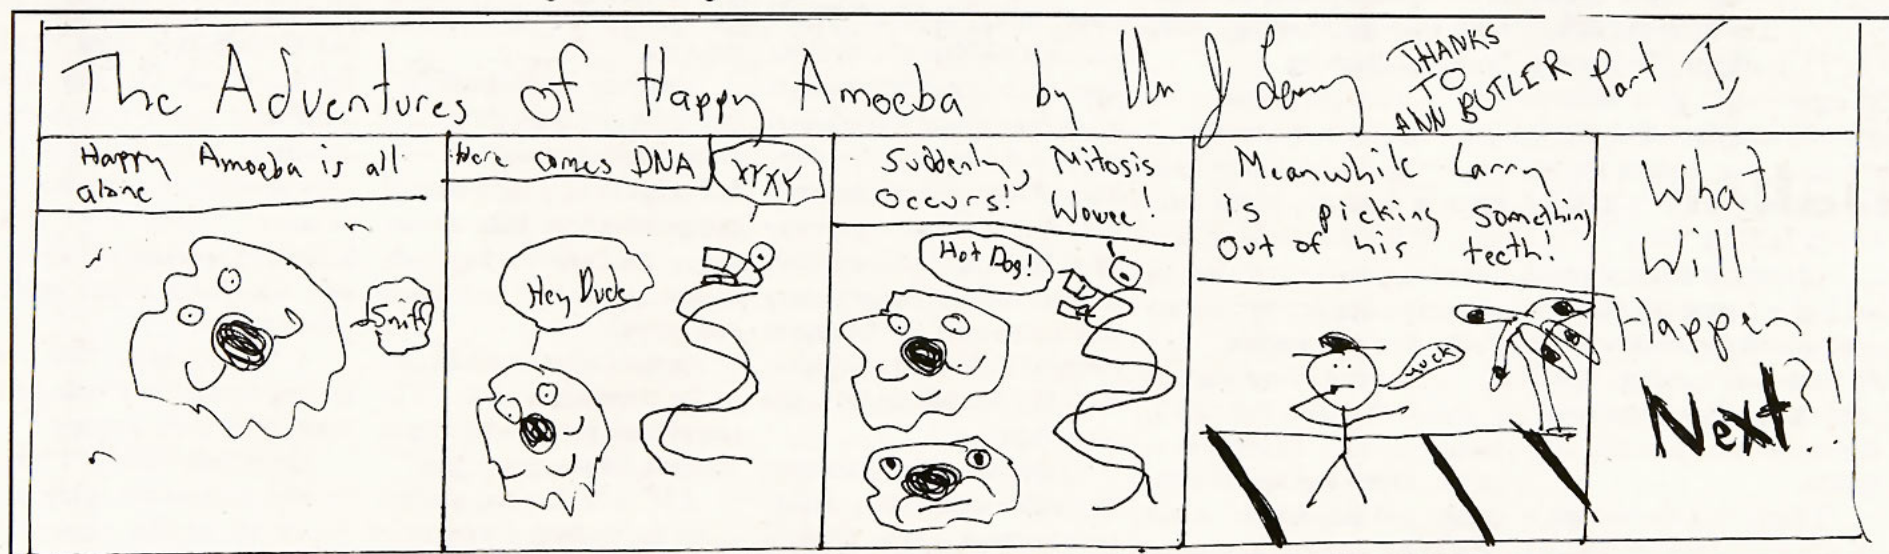 The Adventures of Happy Amoeba by
THANKS
TO
ANN BUTLER
Part I
Happy Amoeba is all
alone
Sniff
Here comes DNA
XYXY
Hey Duck
Suddenly, Mitosis
occurs! Wowee!
Hot Dog!
Meanwhile Larry
is picking something
out of his teeth!
YUCK
What
Will
Happen
Next?!